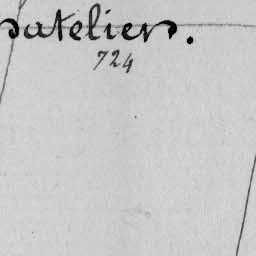 d'atelier.
724